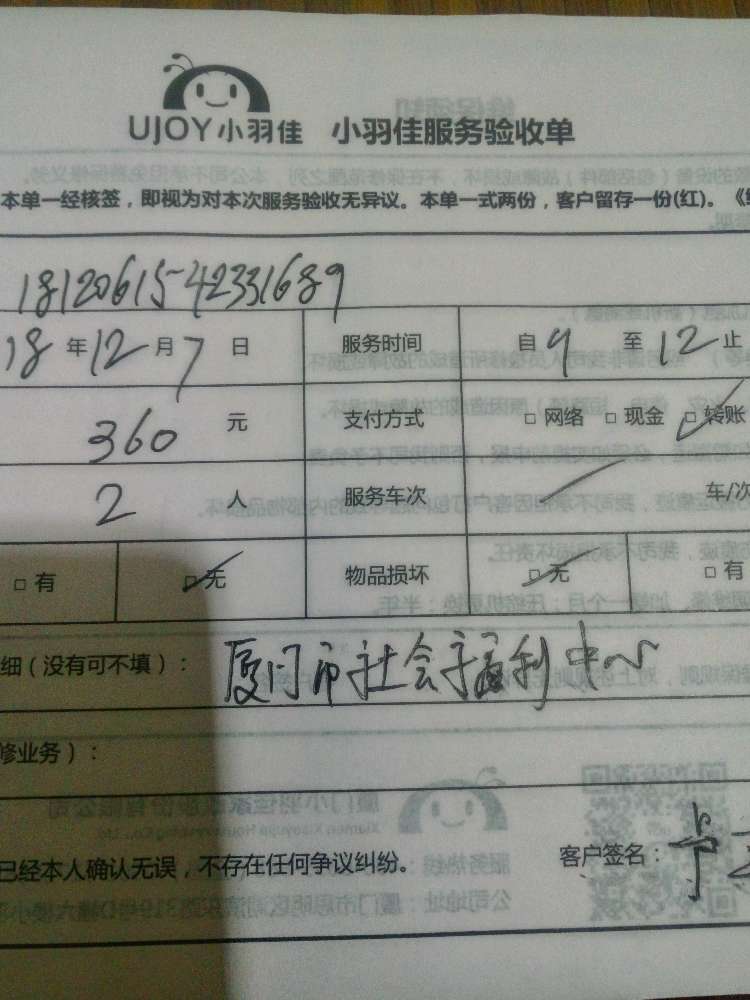 UJOY小羽佳 小羽佳服务验收单
本单一经核签，即视为对本次服务验收无异议。本单一式两份，客户留存一份(红)。《
18120615-42331689
18年12月7日 服务时间 自9至12止
360元 支付方式 □网络 □现金 □转账
2人 服务车次 车/次
□有 □无 物品损坏 □无 □有
细（没有可不填）：厦门市社会福利中心
修业务）：
已经本人确认无误，不存在任何争议纠纷。 客户签名：